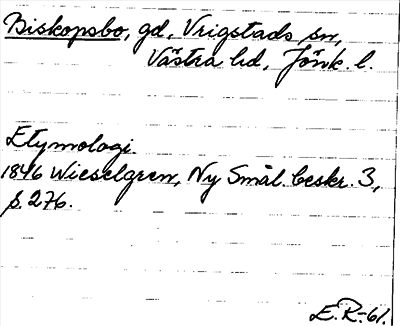 Biskopsbo, gd, Vrigstads sn,
Västra hd, Jönk. l.
Etymologi.
1846 Wieselgren, Ny Smål. beskr. 3,
s. 276.
E.R-61.